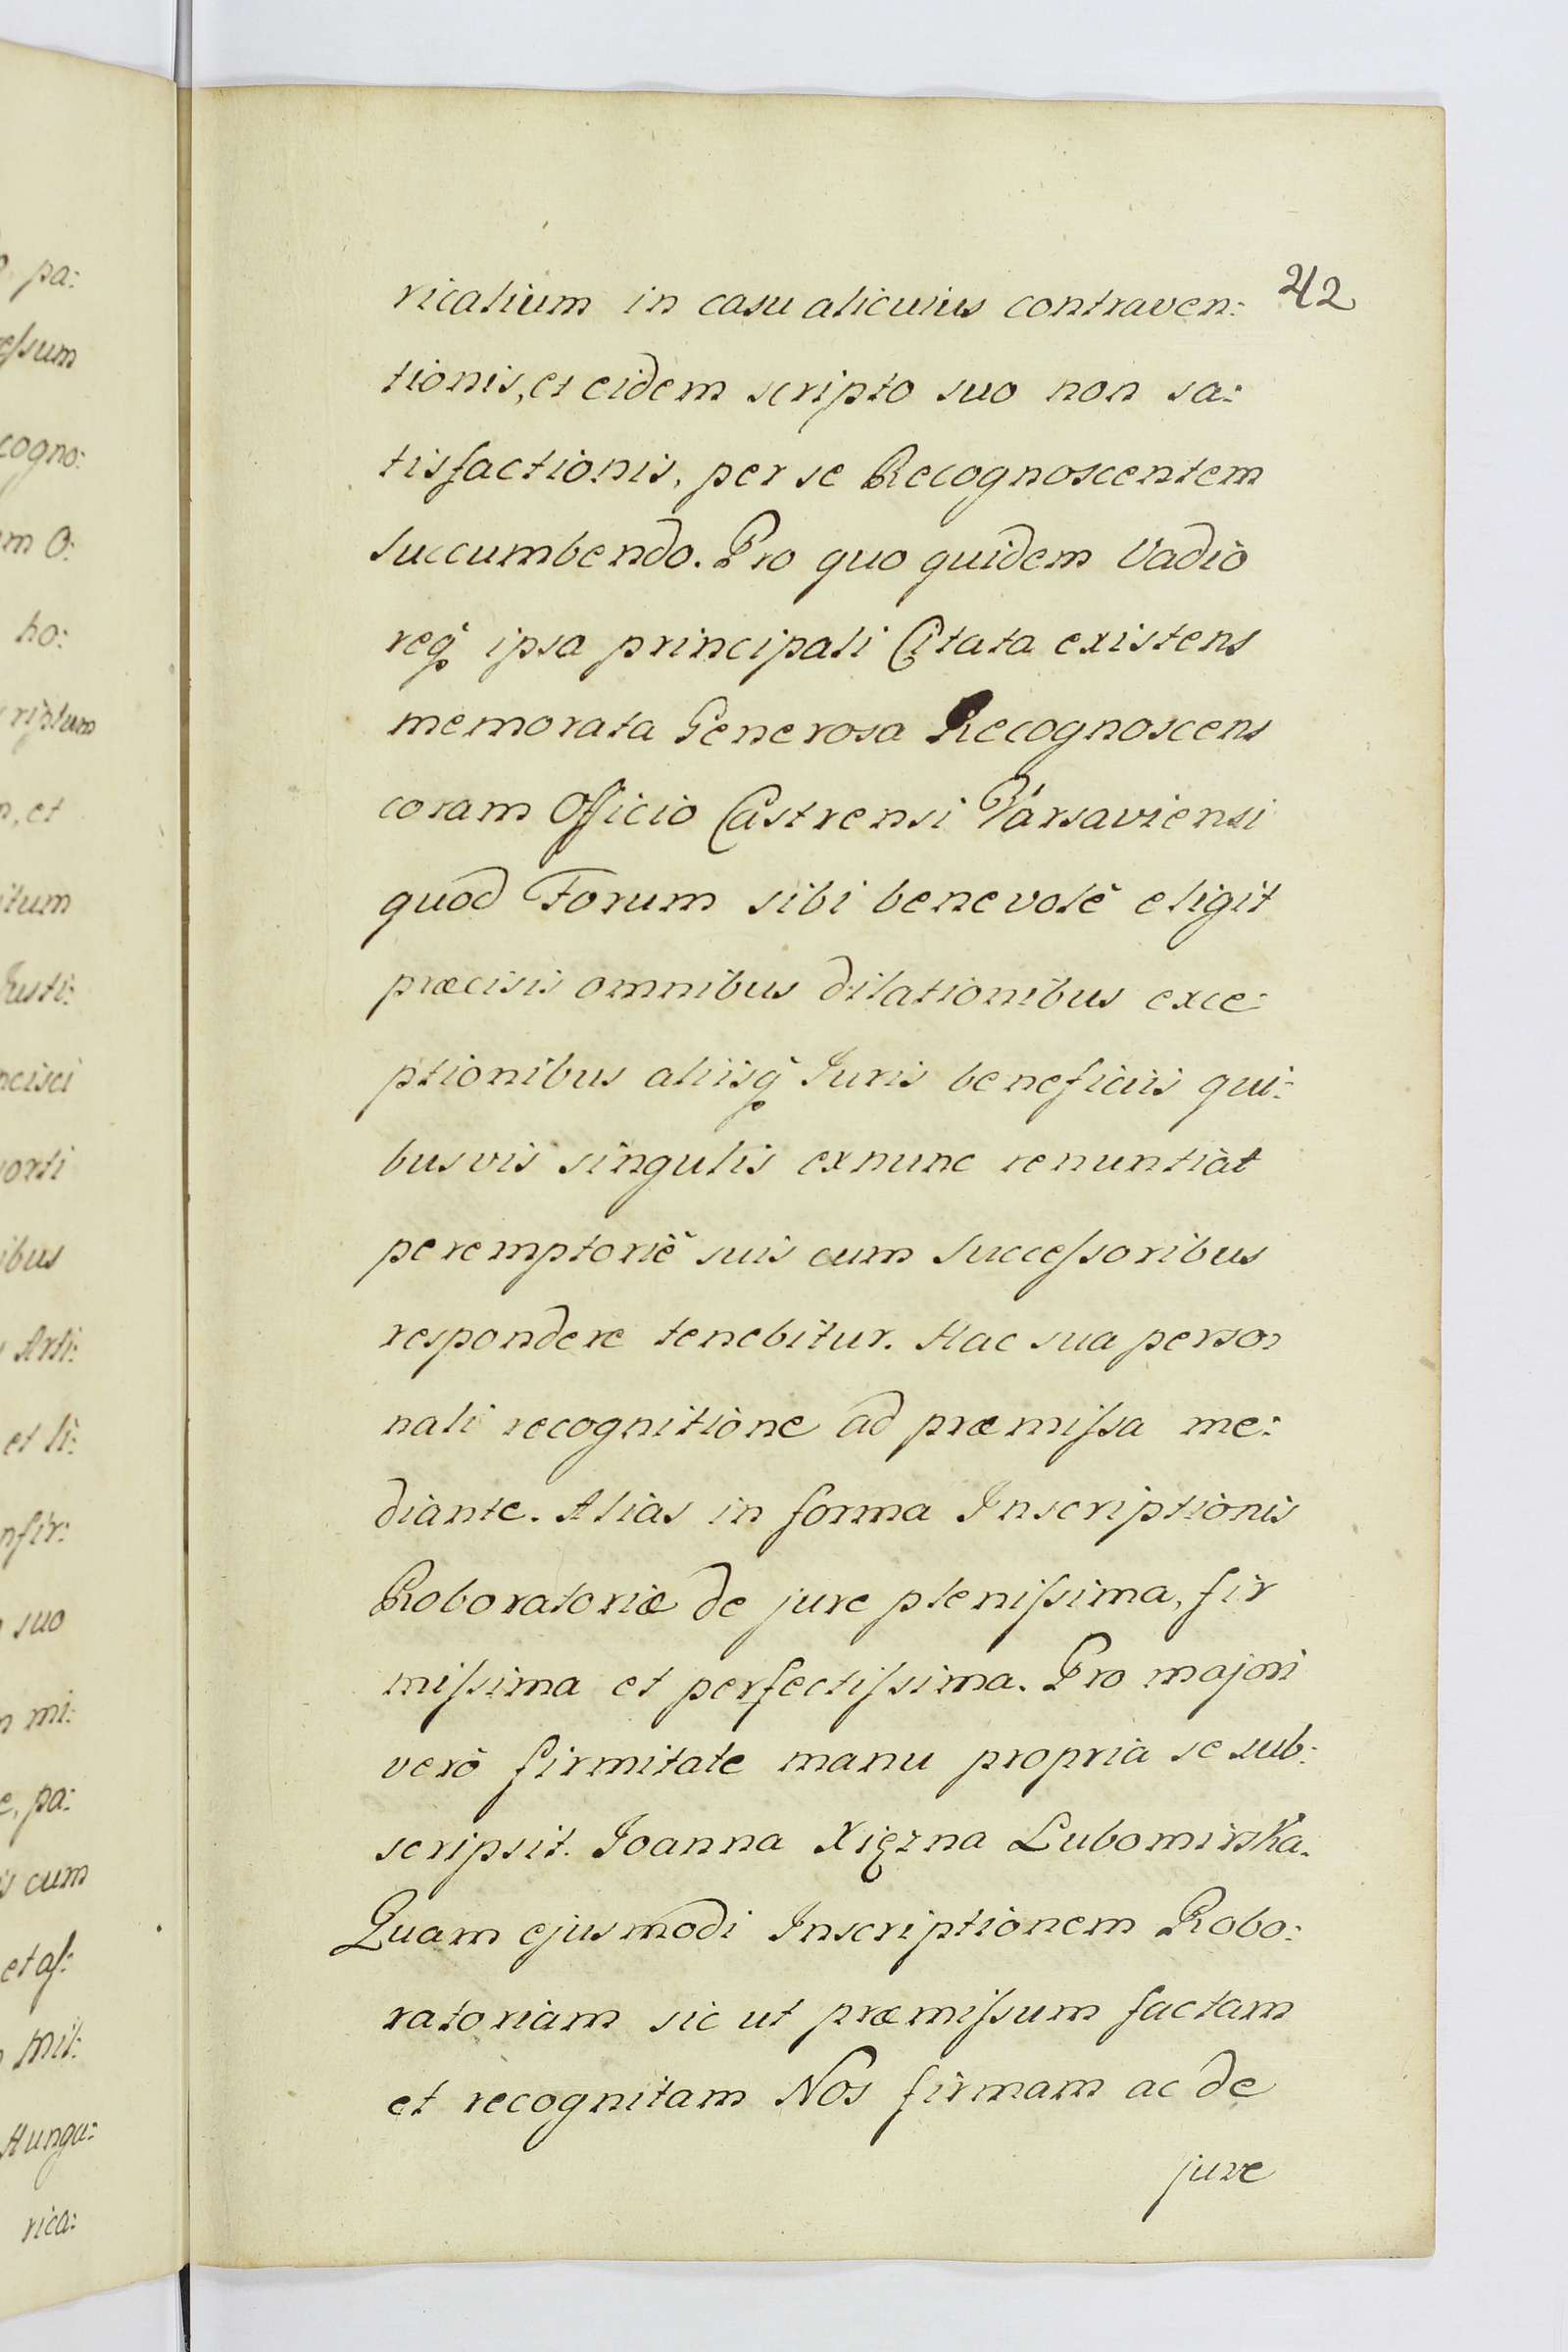 pa:
eſsum
cogno:
m O:
ho:
riptum
, et
itum
Justi:
ncisci
orti
ibus
Arti:
et li:
nfir:
suo
mi:
e, pa:
s cum
et aſ:
Mil:
Hunga:
rica:
42
ricalium in casu alicuius contraven:
tionis, et eidem scripto suo non sa:
tisfactionis, per se Recognoscentem
succumbendo. Pro quo quidem Vadio
reqꝫ ipsa principali Citata existens
memorata Generosa Recognoscens
coram Officio Castrensi Varsaviensi
quod Forum sibi benevolè eligit
præcisis omnibus dilationibus exce:
ptionibus aliisqꝫ Iuris beneficiis qui:
busvis singulis exnunc renuntiat
peremptoriè suis cum Succeſsoribus
respondere tenebitur. Hac sua perso:
nali recognitione ad præmiſsa me:
diante. Alias in forma Inscriptionis
Roboratoriæ de jure pleniſsima, fir
miſsima et perfectiſsima. Pro majori
verò firmitate manu propria se sub:
scripsit. Joanna Xięzna Lubomirska.
Quam ejusmodi Inscriptionem Robo:
ratoriam sic ut præmiſsum factam
et recognitam Nos firmam ac de
jure